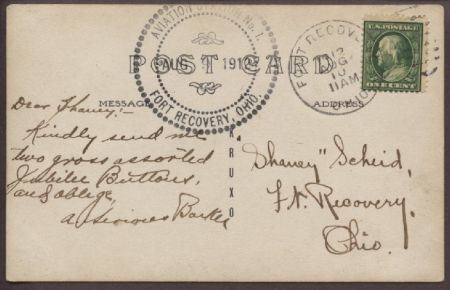 AVIATION STATION No. 1.
AUG. 1912
FORT RECOVERY, OHIO.
FORT RECOVERY
12
AUG
10
11AM
OHIO
U.S. POSTAGE
ONE CENT
POST CARD
MESSAGE
ADDRESS
Dear Shaney:-
Kindly send me
two gross assorted
Jubilee Buttons,
and oblige,
A Serious Backer
"Shaney" Scheid,
Ft. Recovery,
Ohio.
KRUXO